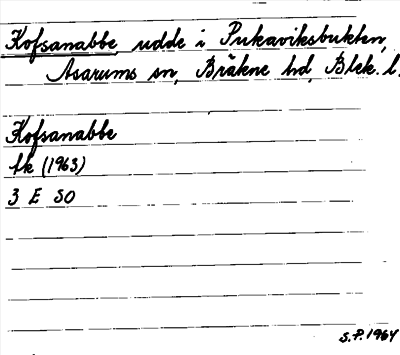 Kofsanabbe, udde i Pukaviksbukten,
Asarums sn, Bräkne hd, Blek. l.
Kofsanabbe
Ek (1963)
3 E SO
S.P. 1964